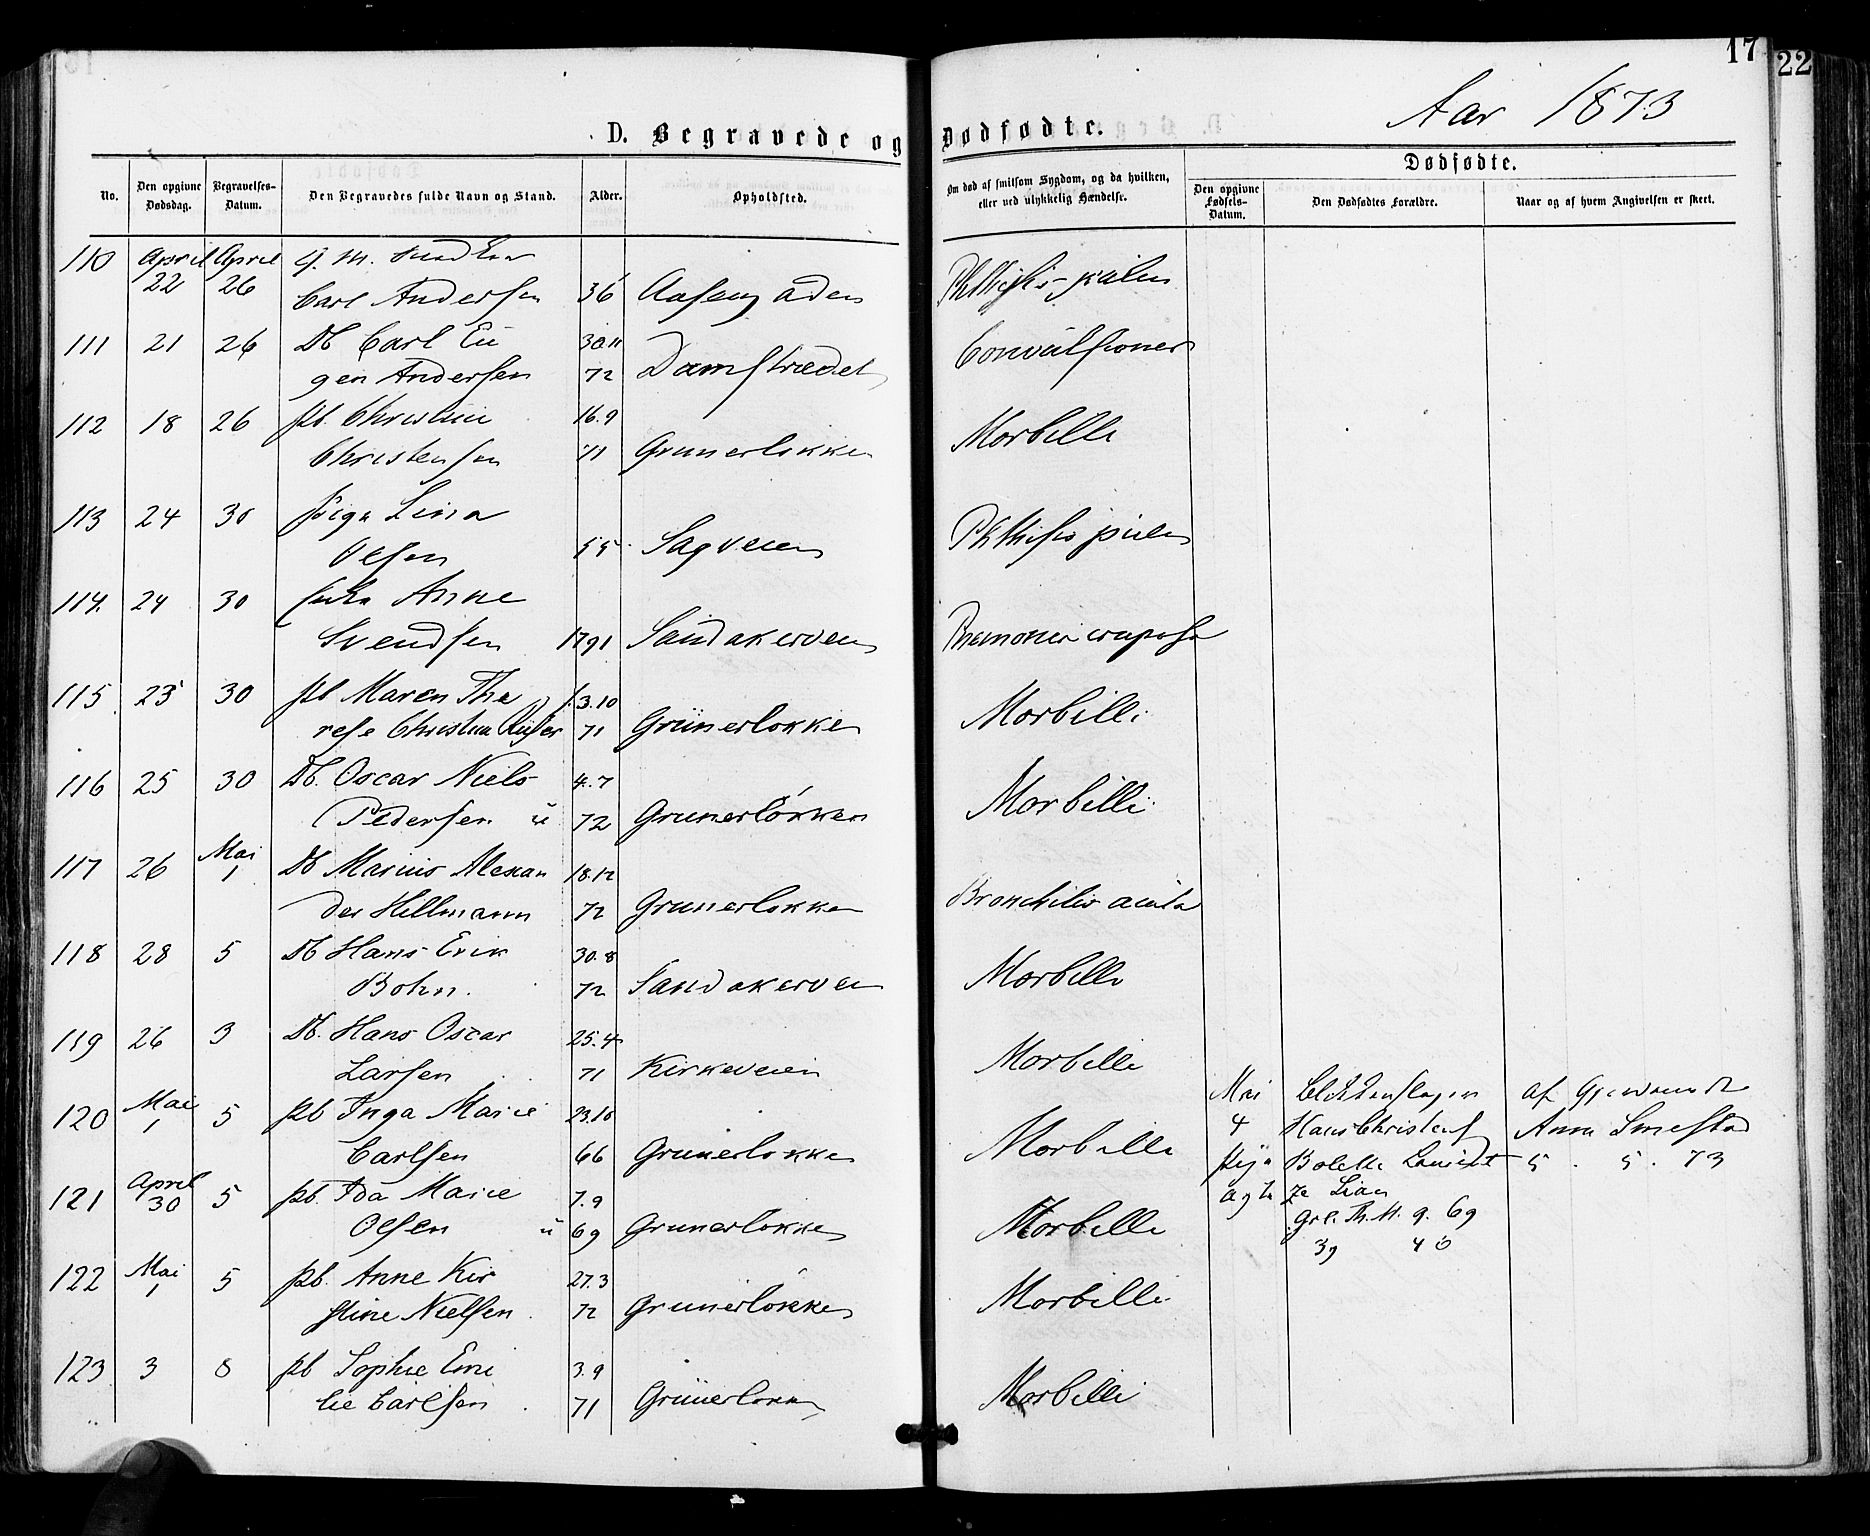 17
22
Aar 1873
D. Begravede og Dødfødte.
No.
Den opgivne Dødsdag.
Begravelses-Datum.
Den Begravedes fulde Navn og Stand.
Alder.
Opholdsted.
Om død af smitsom Sygdom, og da hvilken, eller ved ulykkelig Hændelse.
Dødfødte.
Den opgivne Fødsels-Datum.
Den Dødfødtes Forældre.
Naar og af hvem Angivelsen er skeet.
110 April 22 April 26 G. M.
Carl Andersen 36
111 21 26 Db Carl Eu 30.11 Convulsioner
gen Andersen 72 Damstrædet
112 18 26 Pb. Christine 16.9 Morbilli
Christensen 71 Grunerlokken
113 24 30 Pige Lina
Olsen 55 Sagveien
114. 24 30 Anne
Svendsen 1791 Sandakerveien
115 25 30 Pb Maren The 3.10 Morbilli
rese Christine 71 Grünerlokken
116 25 30 Db. Oscar Niels 4.7 Morbilli
Pedersen u 72 Grunerløkken
117 26 Mai 1 Db Marius Alexan 18.12
der Hillmann 72 Grunerlokken
118 28 5 Db Hans Erik 30.8 Morbilli
Bohn. 72 Sandakerveien
119 26 3 Db. Hans Oscar 25.4 Morbilli
Larsen 71 Kirkeveien
120 Mai 1 5 Pb Inga Marie 23.10 Morbilli
Carlsen 66 Grunerlokken
121 April 30 5 Pb. Ida Marie 7.9 Morbilli
Olsen u 69 Grunerlokken
122 Mai 1 5 Pb. Anne Kir 27.3 Morbilli
stine Nielsen. 72 Grunerløkken
123 3 8 Pb Sophie Emi 3.9 Morbilli
lie Carlsen. 71 Grünerlokken
Mai
4 Hans
Pige Bolette
ægte
39 40
af
Anne Smestad
5. 5. 73